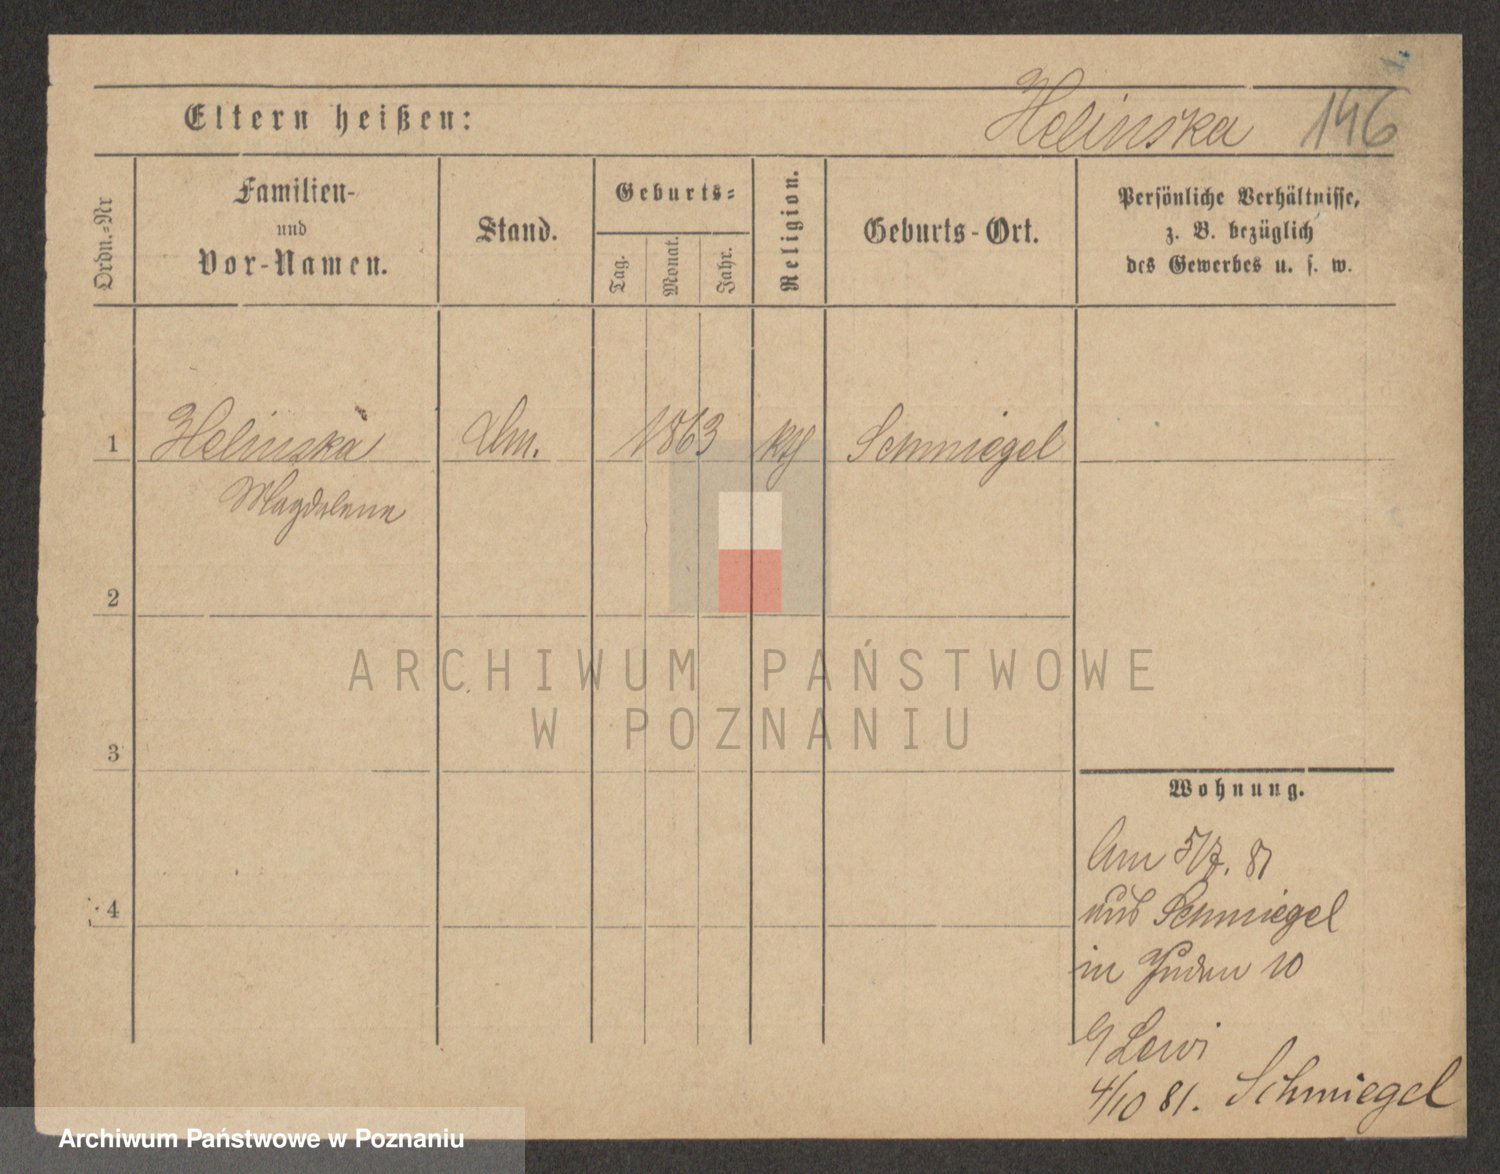 Helinska 146
Eltern heißen:
Ordn.=Nr
Familien-
und
Vor-Namen.
Stand.
Geburts=
Tag.
Monat.
Jahr.
Religion.
Geburts-Ort.
Persönliche Verhältnisse,
z. B. bezüglich
des Gewerbes u. s. w.
1 Helinska 1863 kth Schmiegel
Magdalena
2
3
4
ARCHIWUM PAŃSTWOWE
W POZNANIU
Wohnung.
Am 5/7. 81
aus Schmiegel
in Juden 10
Lewi
4/10 81. Schmiegel
Archiwum Państwowe w Poznaniu